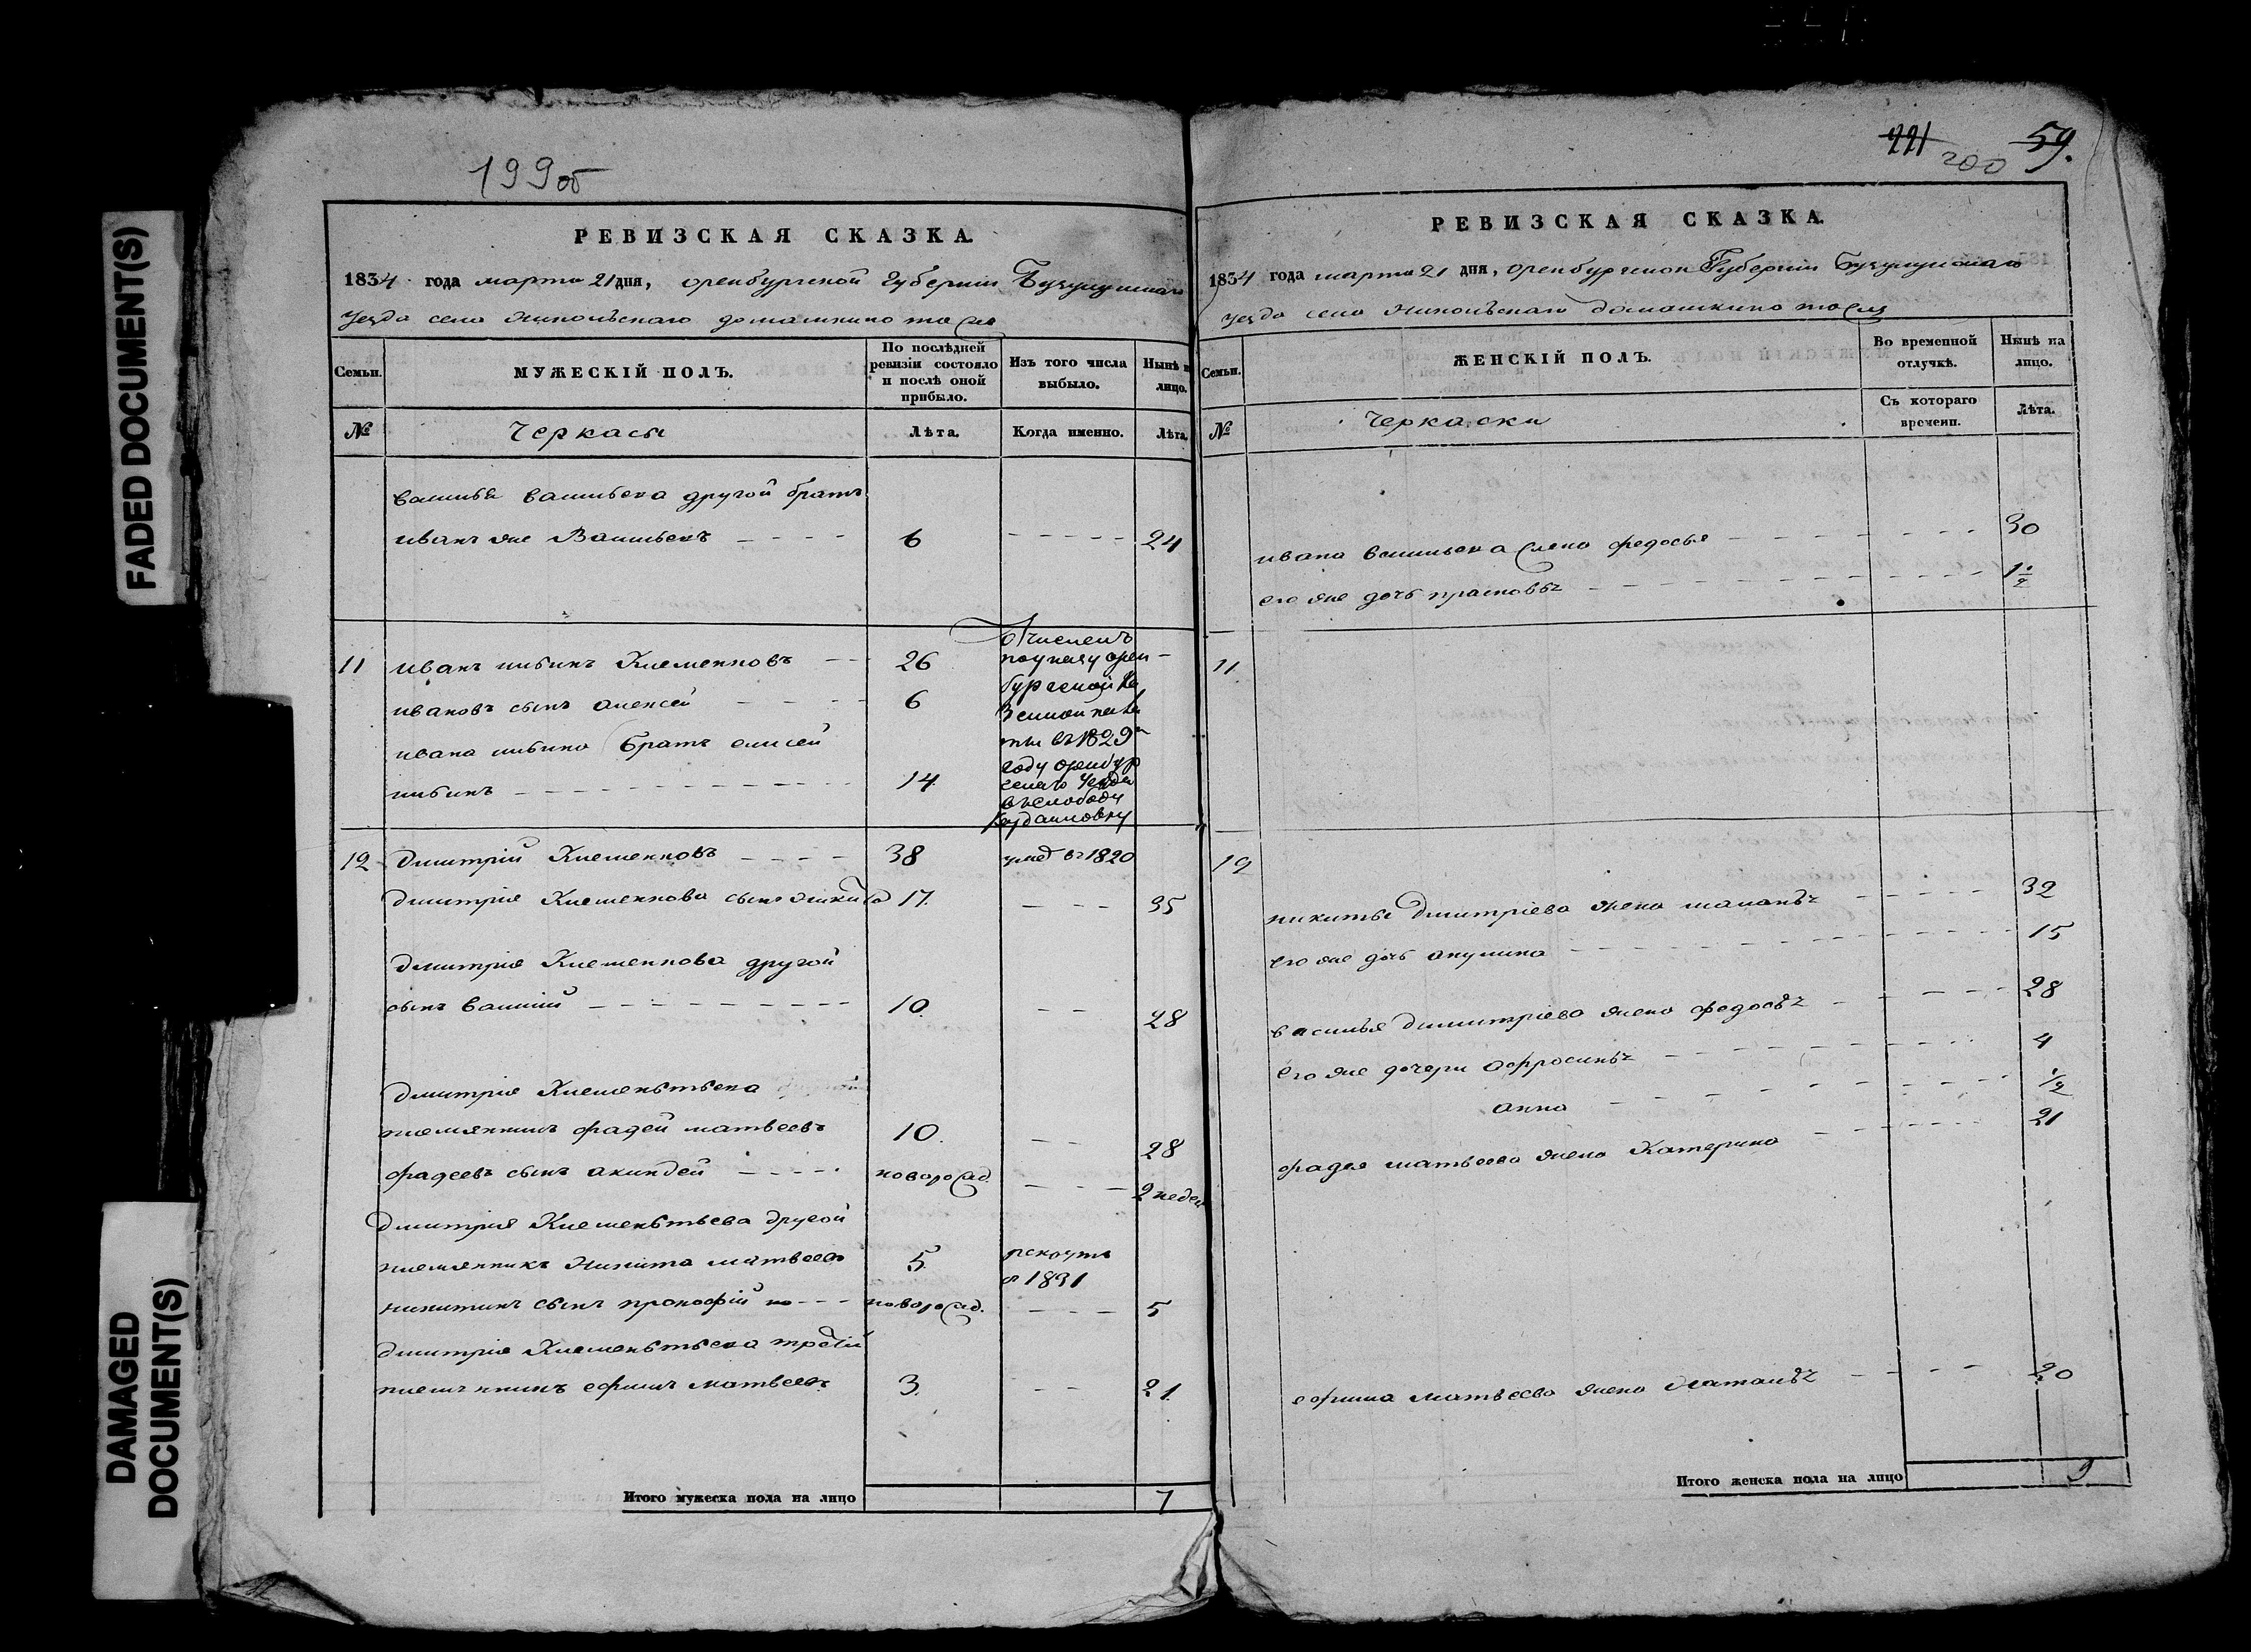 FADED DOCUMENT(S)
DAMAGED
DOCUMENT(S)
199об
РЕВИЗСКАЯ СКАЗКА.
1834 года марта 21 дня, оренбургской губернии Бузулуцкаго
уезда села никольскаго домашкино то
Семьи.
МУЖЕСКІЙ ПОЛЪ.
По послѣдней
ревизіи состояло
и послѣ оной
прибыло.
Изъ того числа
выбыло.
Нынѣ
лицо.
№
Черкасы
Лѣта.
Когда именно.
Лѣта.
василья васильева другой братъ
иванъ же Васильевъ 6 24
11 иванъ ильинъ Клеменновъ 26
ивановъ сынъ алексей 6
ивана ильина братъ елисей
ильинъ 14
отчисленъ
по указу орен-
бургской ка
зенной пала
ты въ 1829м
году оренбур
скаго уезда
въ слободу
12 дмитрій Клеменновъ 38 умеръ въ 1820
дмитрія Клеменнова сынъ никита 17. 35
дмитрія Клеменнова другой
сынъ василій 10. 28
дмитрія Клеменьтьева
племянникъ фадей матвеевъ 10. 28
фадеевъ сынъ акиндей новорожд. 2 недел
дмитрия Клеменьтьева другой
племянникъ никита матвеевъ 5. рекруты
в 1831
никитинъ сынъ прокофій новорожд. 5
дмитрія Клеменьтьева третій
племянникъ ефимъ матвеевъ 3. 21.
Итого мужеска пола на лицо 7
221 200 59.
РЕВИЗСКАЯ СКАЗКА.
1834 года марта 21 дня, оренбургской Губернии Бузулуцкаго
уезда села никольскаго домашкино то
Семьи.
ЖЕНСКІЙ ПОЛЪ.
Во временной
отлучкѣ.
Нынѣ на
лицо.
№
Черкаски
Съ котораго
времени.
Лѣта.
ивана васильева жена федосья 30
его же дочь прасковья 1 1/2
11
12
никиты дмитріева жена маланья 32
его же дочь акулина 15
василья димитріева жена федосья 28
его же дочери офросинья 4
анна 1/2
фадея матвеева жена Катерина 21
ефима матвеева жена наталья 20
Итого женска пола на лицо 9